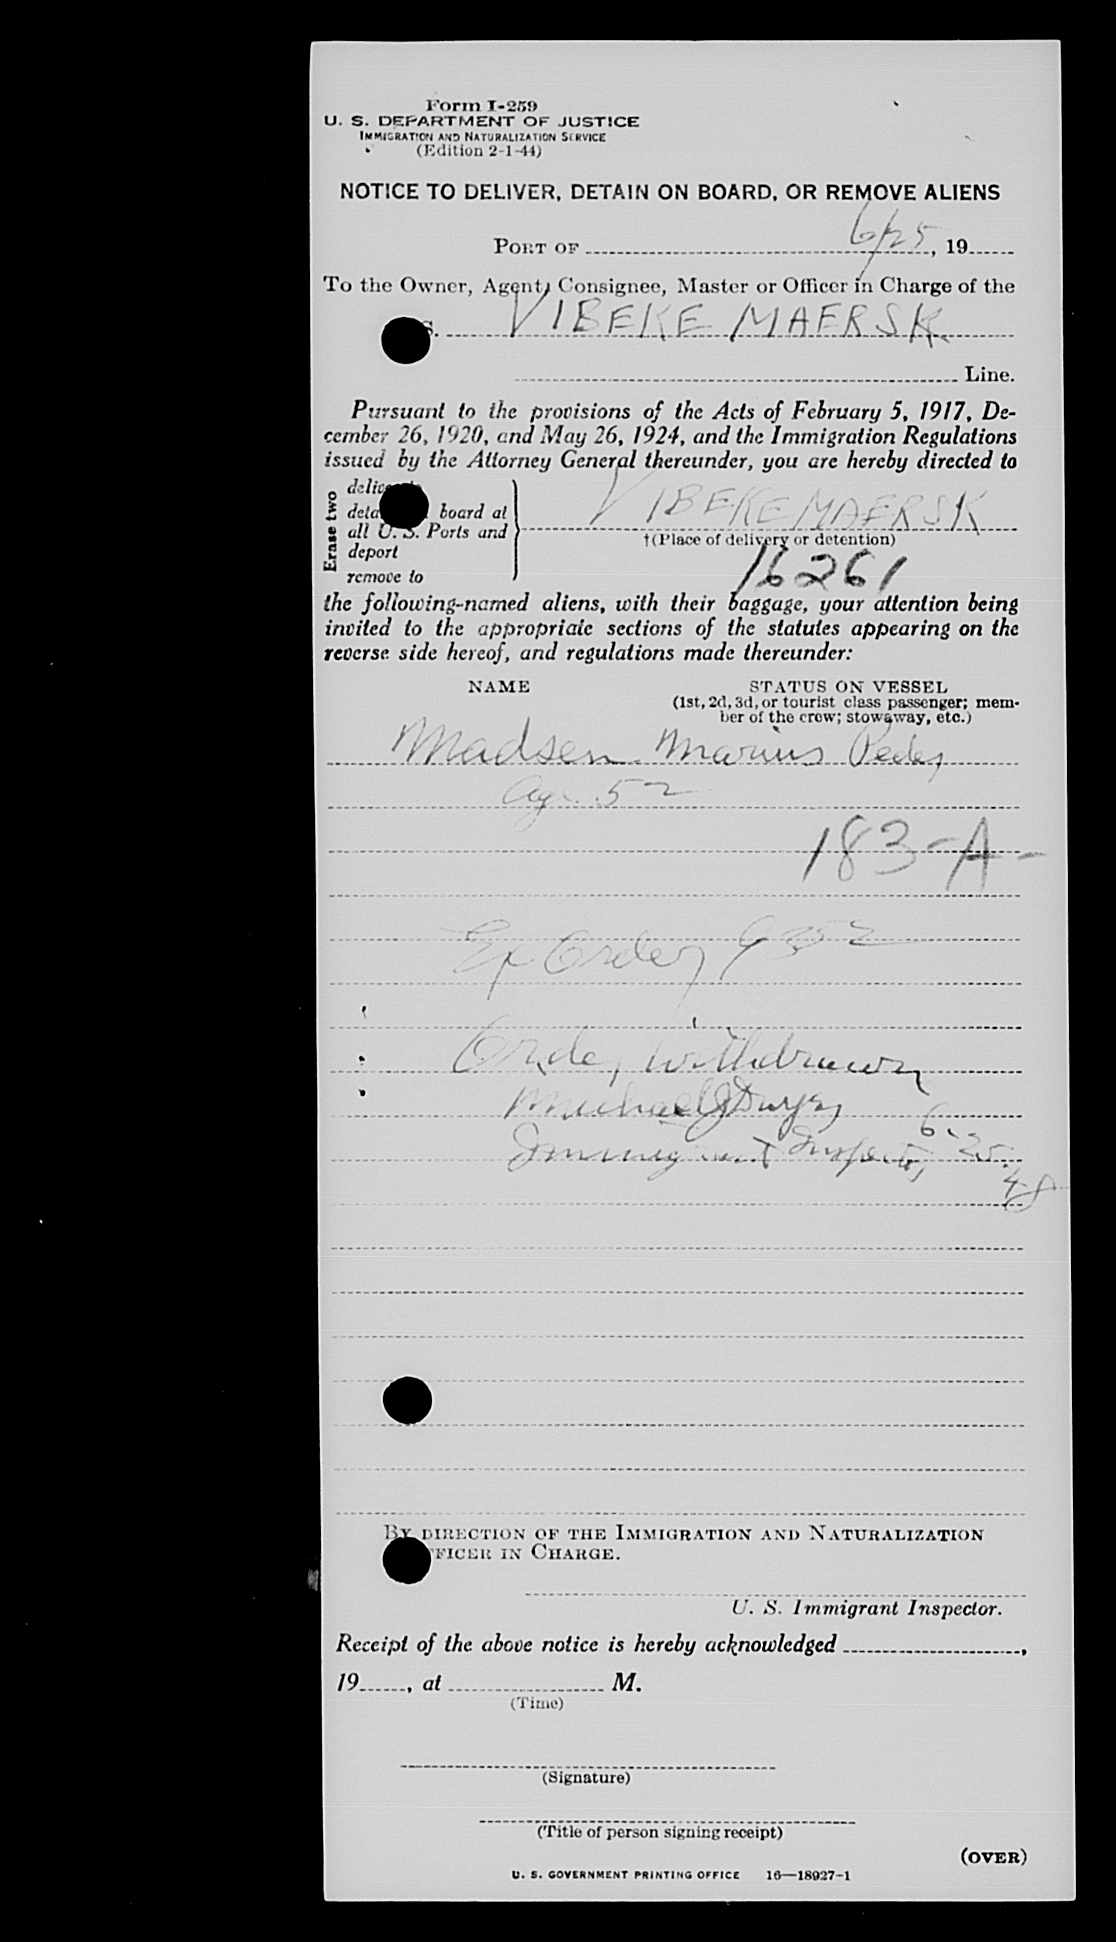 Form I-259
U. S. DEPARTMENT OF JUSTICE
IMMIGRATION AND NATURALIZATION SERVICE
(Edition 2-1-44)
NOTICE TO DELIVER, DETAIN ON BOARD, OR REMOVE ALIENS
PORT OF 6/25, 19
To the Owner, Agent, Consignee, Master or Officer in Charge of the
S. VIBEKE MAERSK
Line.
Pursuant to the provisions of the Acts of February 5, 1917, De-
cember 26, 1920, and May 26, 1924, and the Immigration Regulations
issued by the Attorney General thereunder, you are hereby directed to
Erase two
board at
all U. S. Ports and
deport
remove to
VIBEKE MAERSK
†(Place of delivery or detention)
16261
the following-named aliens, with their baggage, your attention being
invited to the appropriate sections of the statutes appearing on the
reverse side hereof, and regulations made thereunder:
NAME STATUS ON VESSEL
(1st, 2d, 3d, or tourist class passenger; mem-
ber of the crew; stowaway, etc.)
Madsen Marius Peder
Age 52
183-A-
Ex Order 9352
Order Withdrawn
Michael J Dwyer
Immigrant Inspector, 6-25-48
BY DIRECTION OF THE IMMIGRATION AND NATURALIZATION
FICER IN CHARGE.
U. S. Immigrant Inspector.
Receipt of the above notice is hereby acknowledged ,
19 , at M.
(Time)
(Signature)
(Title of person signing receipt)
(OVER)
U. S. GOVERNMENT PRINTING OFFICE 16—18927-1